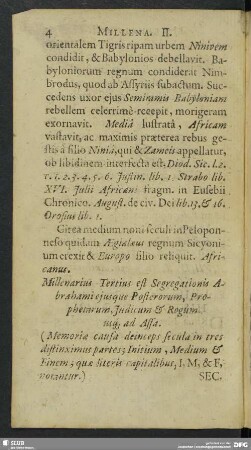 4 MILLENA. II.
orientalem Tigris ripam urbem Ninivem
condidit, & Babylonios debellavit. Ba-
byloniorum regnum condiderat Nim-
brodus, quod ab Assyriis subactum. Suc-
cedens uxor ejus Semiramis Babyloniam
rebellem celerrimè recepit, morigeram
exornavit. Mediâ lustratâ, Africam
vastavit, ac maximis præterea rebus ge-
stis à filio Niniâ, qui & Zameis appellatur,
ob libidinem interfecta est. Diod. Sic. l. 2.
c. 1. 2. 3. 4. 5. 6. Justin. lib. 1. Strabo lib.
XVI. Julii Africani fragm. in Eusebii
Chronico. August. de civ. Dei lib. 15. & 16.
Orosius lib. 1.
Circa medium noni seculi in Pelopon-
neso quidam Ægialeus regnum Sicyoni-
um erexit & Europo filio reliquit. Afri-
canus.
Millenarius Tertius est Segregationis A-
brahami ejusque Posterorum, Pro-
phetarum, Judicum & Regum
usq; ad Assa.
(Memoriæ causa deinceps secula in tres
distinximus partes; Initium, Medium &
Finem; quæ literis capitalibus, I, M, & F,
notantur.) SEC.
SLUB